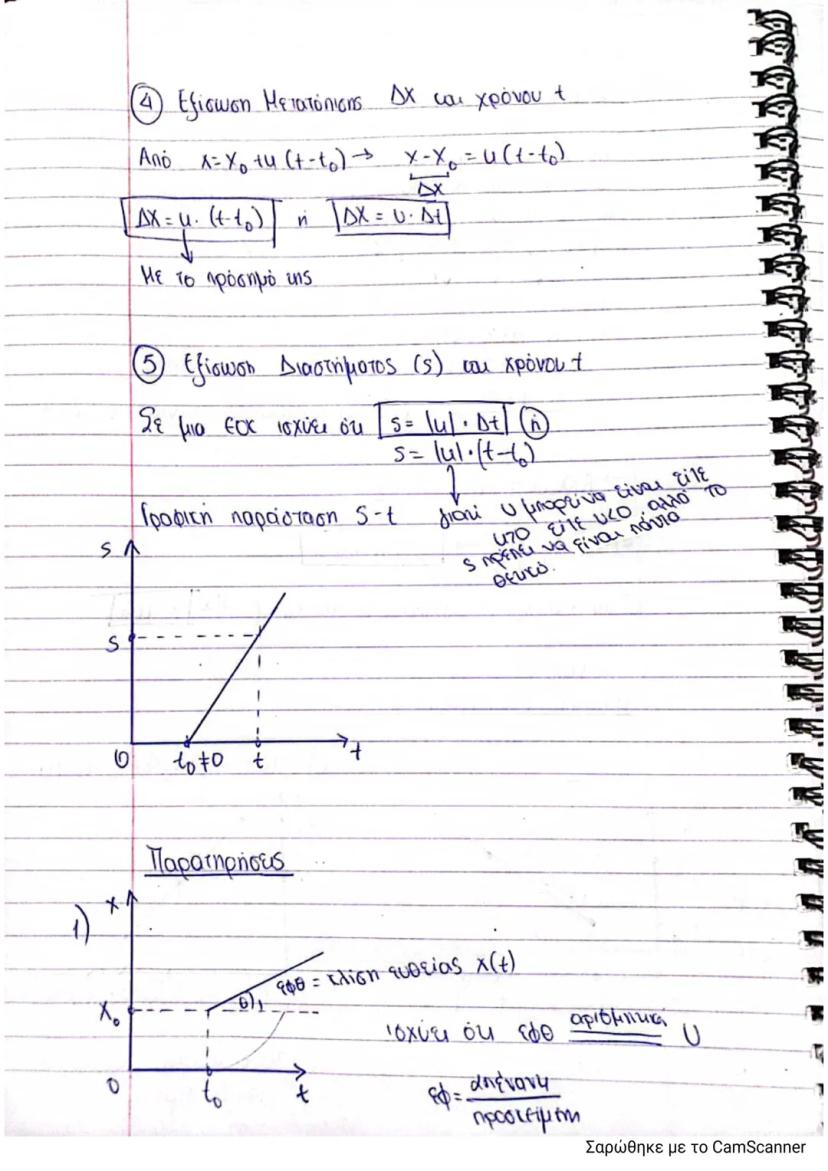 ④ Εξίσωση Μετατόπισης Δx και χρόνου t
Από x=x₀+υ(t-t₀)→ x-x₀=υ(t-t₀)
Δx
Δx=υ·(t-t₀) ή Δx=υ·Δt
Με το πρόσημό της
⑤ Εξίσωση Διαστήματος (s) και χρόνου t
Σε μια ΕΟΚ ισχύει ότι s=|υ|·Δt ή
s=|υ|·(t-t₀)
Γραφική παράσταση s-t
γιατί υ μπορεί να είναι είτε
υ>0 είτε υ<0, αλλά το
s πρέπει να είναι πάντα
θετικό.
s
s
0 t₀≠0 t t
Παρατηρήσεις
1)
x
εφθ = κλίση ευθείας x(t)
θ
x₀
ισχύει ότι εφθ αριθμητικά υ
0 t₀ t
εφ= απέναντι
προσκείμενη
Σαρώθηκε με το CamScanner